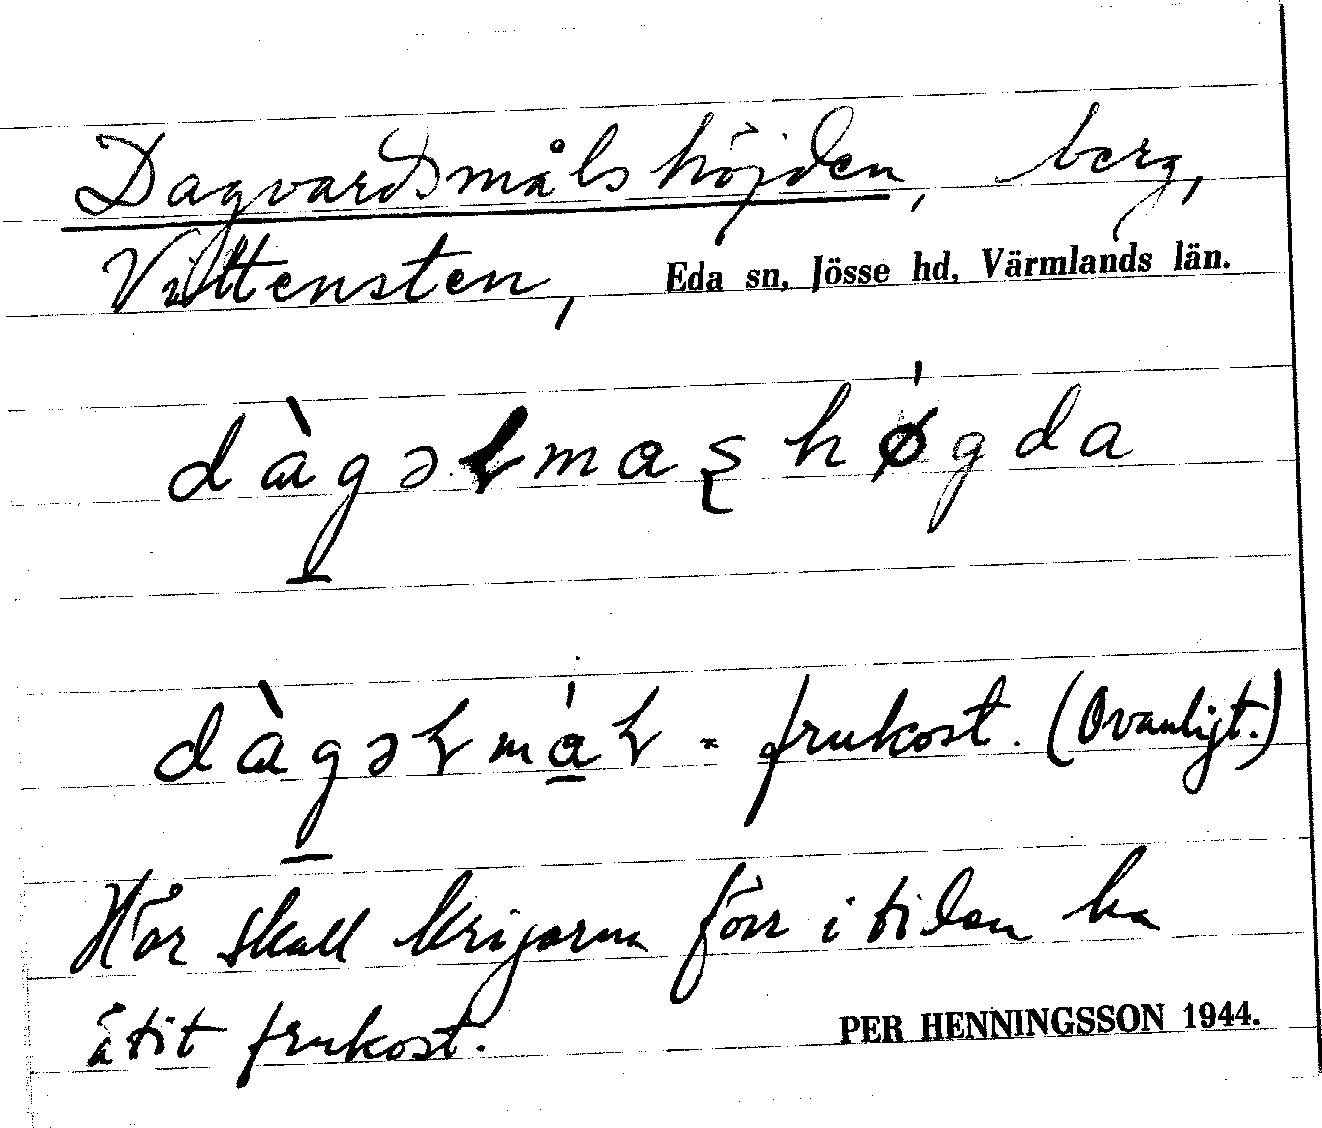 Dagvardsmålshöjden, berg,
Vittensten, Eda sn, Jösse hd, Värmlands län.
dàgəɫmaʂhǿgda
dàgəɫmáɫ = frukost. (Ovanligt.)
Här skall krigarna förr i tiden ha
ätit frukost.
PER HENNINGSSON 1944.